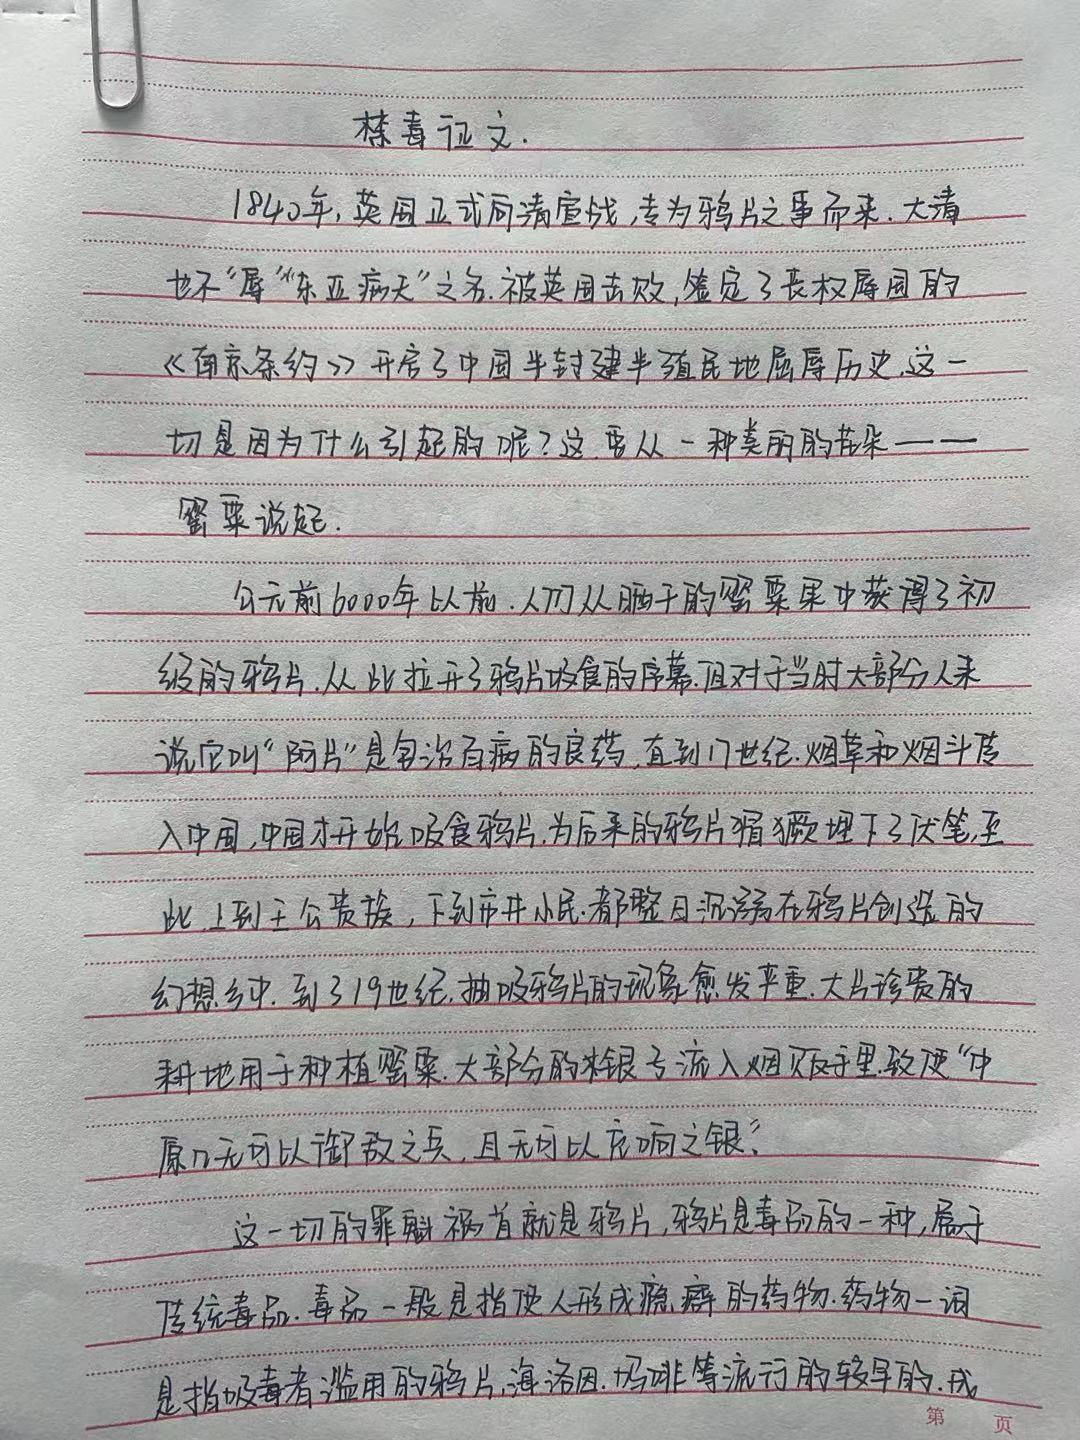 禁毒征文.
1840年,英国正式向清宣战,专为鸦片之事而来.大清
也不"辱""东亚病夫"之名.被英国击败,签定了丧权辱国的
《南京条约》开启了中国半封建半殖民地屈辱历史.这一
切是因为什么引起的呢?这要从一种美丽的花朵——
罂粟说起.
公元前6000年以前.人们从晒干的罂粟果中获得了初
级的鸦片.从此拉开了鸦片吸食的序幕.但对于当时大部分人来
说它叫"阿片"是包治百病的良药,直到17世纪.烟草和烟斗传
入中国,中国才开始吸食鸦片.为后来的鸦片猖獗埋下了伏笔,至
此.上到王公贵族,下到市井小民.都整日沉溺在鸦片创造的
幻想乡中.到了19世纪.抽吸鸦片的现象愈发严重.大片珍贵的
耕地用于种植罂粟.大部分的银子流入烟贩手里.致使"中
原几无可以御敌之兵,且无可以充饷之银"
这一切的罪魁祸首就是鸦片,鸦片是毒品的一种,属于
传统毒品.毒品一般是指使人形成瘾癖的药物.药物一词
是指吸毒者滥用的鸦片,海洛因.吗啡等流行的较早的.成
第 页